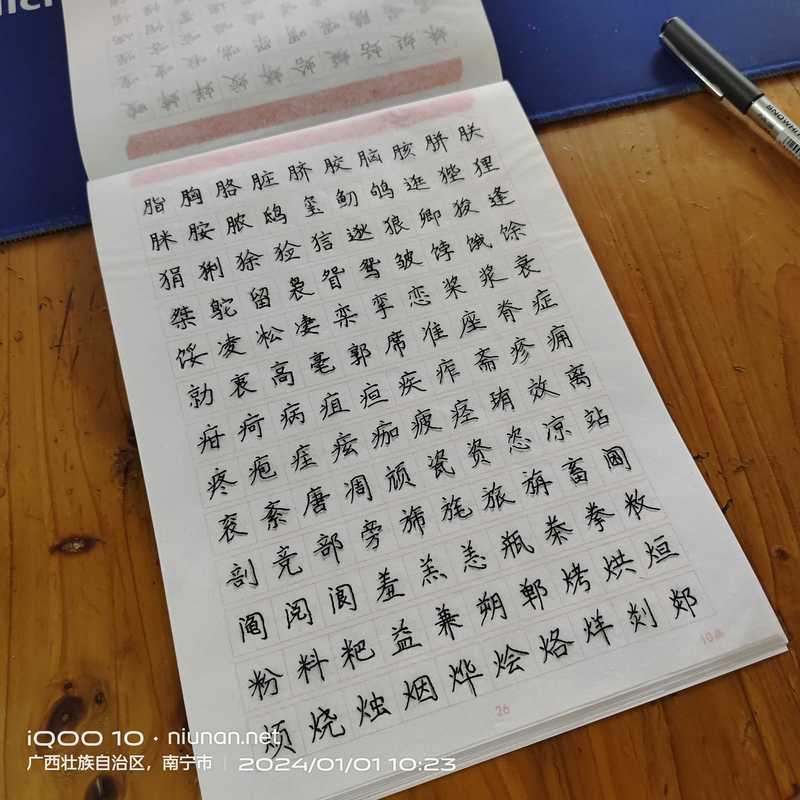 脂胸胳脏脐胶脑胲胼朕
脒胺脓鸱玺鱽鸲逛狴狸
狷猁狳猃狺逖狼卿狻逢
桀鸵留袅眢鸳皱饽饿馀
馁凌凇凄栾挛恋桨浆衰
勍衷高亳郭席准座脊症
疳疴病疽疸疾痄斋疹痈
疼疱疰痃痂疲痉效离
衮紊唐凋颃瓷资恣凉站
剖竞部旁旆旄旅旃畜阃
阄阅阆羞羔恙瓶桊拳敉
粉料粑益兼朔郸烤烘烜
烦烧烛烟烨烩烙烊剡郯
10画
26
iQOO 10 · niunan.net
广西壮族自治区，南宁市 | 2024/01/01 10:23